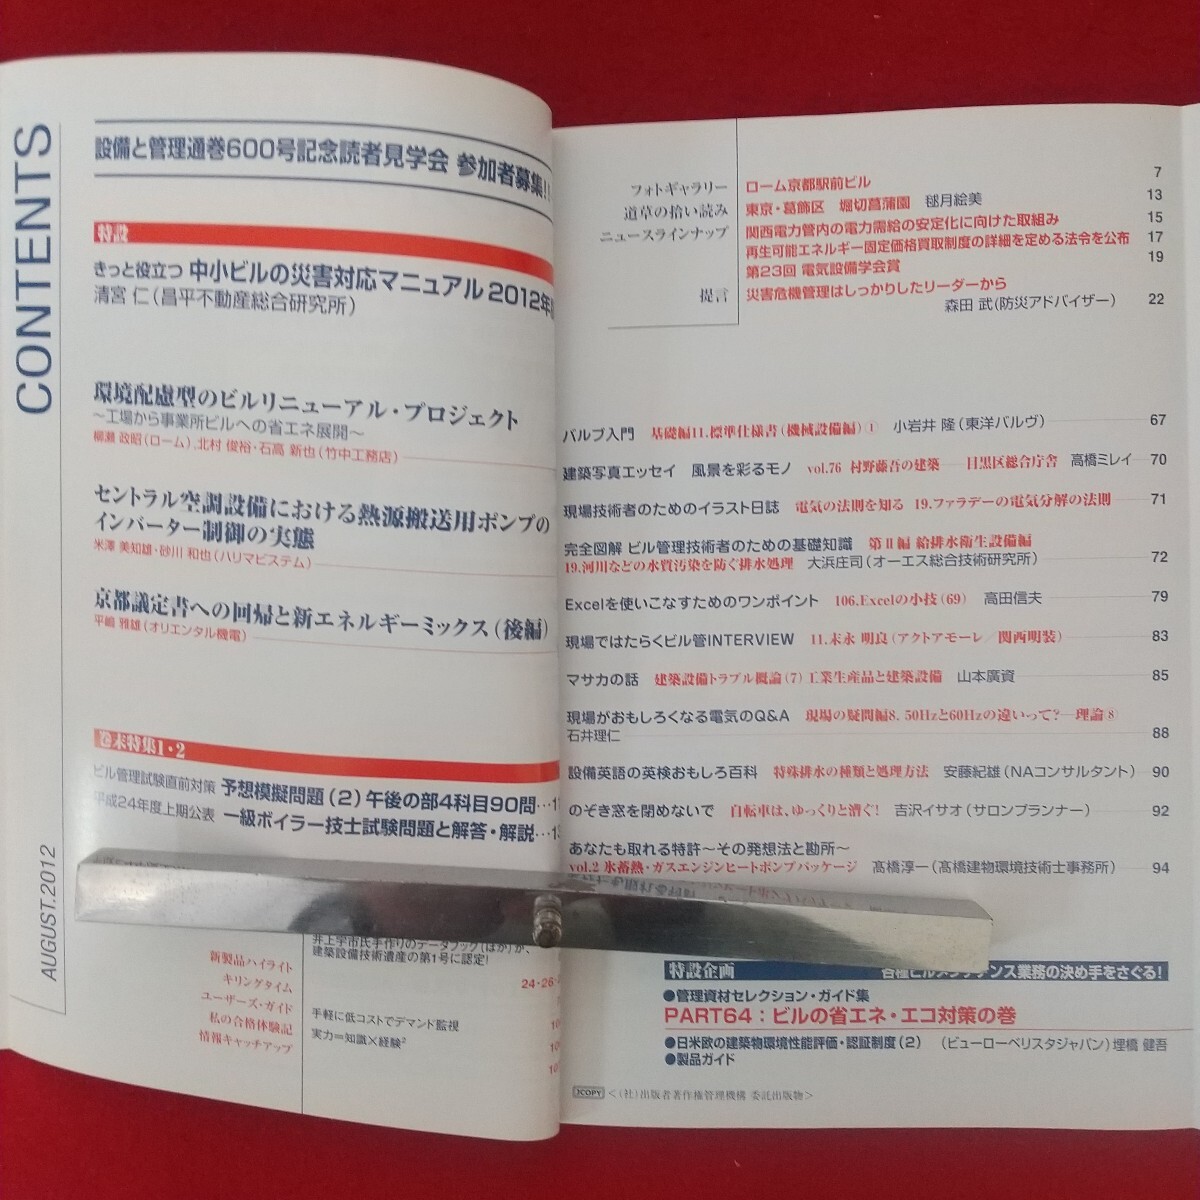 CONTENTS
AUGUST.2012
設備と管理通巻600号記念読者見学会 参加者募集!!
特設
きっと役立つ 中小ビルの災害対応マニュアル 2012年
清宮 仁（昌平不動産総合研究所）
環境配慮型のビルリニューアル・プロジェクト
～工場から事業所ビルへの省エネ展開～
柳瀬 政昭（ローム）、北村 俊裕・石高 新也（竹中工務店）
セントラル空調設備における熱源搬送用ポンプの
インバーター制御の実態
米澤 美知雄・砂川 和也（ハリマビステム）
京都議定書への回帰と新エネルギーミックス（後編）
平嶋 雅雄（オリエンタル機電）
巻末特集1・2
ビル管理試験直前対策 予想模擬問題（2）午後の部4科目90問…1
平成24年度上期公表 一級ボイラー技士試験問題と解答・解説…13
井上宇市氏手作りのデータブック(ほか)が、
建築設備技術遺産の第1号に認定!
新製品ハイライト 24・26・
キリングタイム
ユーザーズ・ガイド 手軽に低コストでデマンド監視
私の合格体験記 実力＝知識×経験²
情報キャッチアップ
フォトギャラリー ローム京都駅前ビル 7
道草の拾い読み 東京・葛飾区 堀切菖蒲園 毬月絵美 13
ニュースラインナップ 関西電力管内の電力需給の安定化に向けた取組み 15
再生可能エネルギー固定価格買取制度の詳細を定める法令を公布 17
第23回 電気設備学会賞 19
提言 災害危機管理はしっかりしたリーダーから
森田 武(防災アドバイザー) 22
バルブ入門 基礎編11.標準仕様書（機械設備編）① 小岩井 隆（東洋バルヴ） 67
建築写真エッセイ 風景を彩るモノ vol.76 村野藤吾の建築—目黒区総合庁舎 高橋ミレイ 70
現場技術者のためのイラスト日誌 電気の法則を知る 19.ファラデーの電気分解の法則 71
完全図解 ビル管理技術者のための基礎知識 第Ⅱ編 給排水衛生設備編
19.河川などの水質汚染を防ぐ排水処理 大浜庄司（オーエス総合技術研究所） 72
Excelを使いこなすためのワンポイント 106.Excelの小技（69） 高田信夫 79
現場ではたらくビル管INTERVIEW 11.末永 明良（アクトアモーレ／関西明装） 83
マサカの話 建築設備トラブル概論（7）工業生産品と建築設備 山本廣資 85
現場がおもしろくなる電気のQ&A 現場の疑問編8. 50Hzと60Hzの違いって?—理論⑧
石井理仁 88
設備英語の英検おもしろ百科 特殊排水の種類と処理方法 安藤紀雄（NAコンサルタント） 90
のぞき窓を閉めないで 自転車は、ゆっくりと漕ぐ! 吉沢イサオ（サロンプランナー） 92
あなたも取れる特許～その発想法と勘所～
vol.2 氷蓄熱・ガスエンジンヒートポンプパッケージ 髙橋淳一（髙橋建物環境技術士事務所） 94
特設企画 各種ビルメンテナンス業務の決め手をさぐる!
●管理資材セレクション・ガイド集
PART64：ビルの省エネ・エコ対策の巻
●日米欧の建築物環境性能評価・認証制度（2） （ビューローベリスタジャパン）埋橋 健吾
●製品ガイド
JCOPY ＜（社）出版者著作権管理機構 委託出版物＞